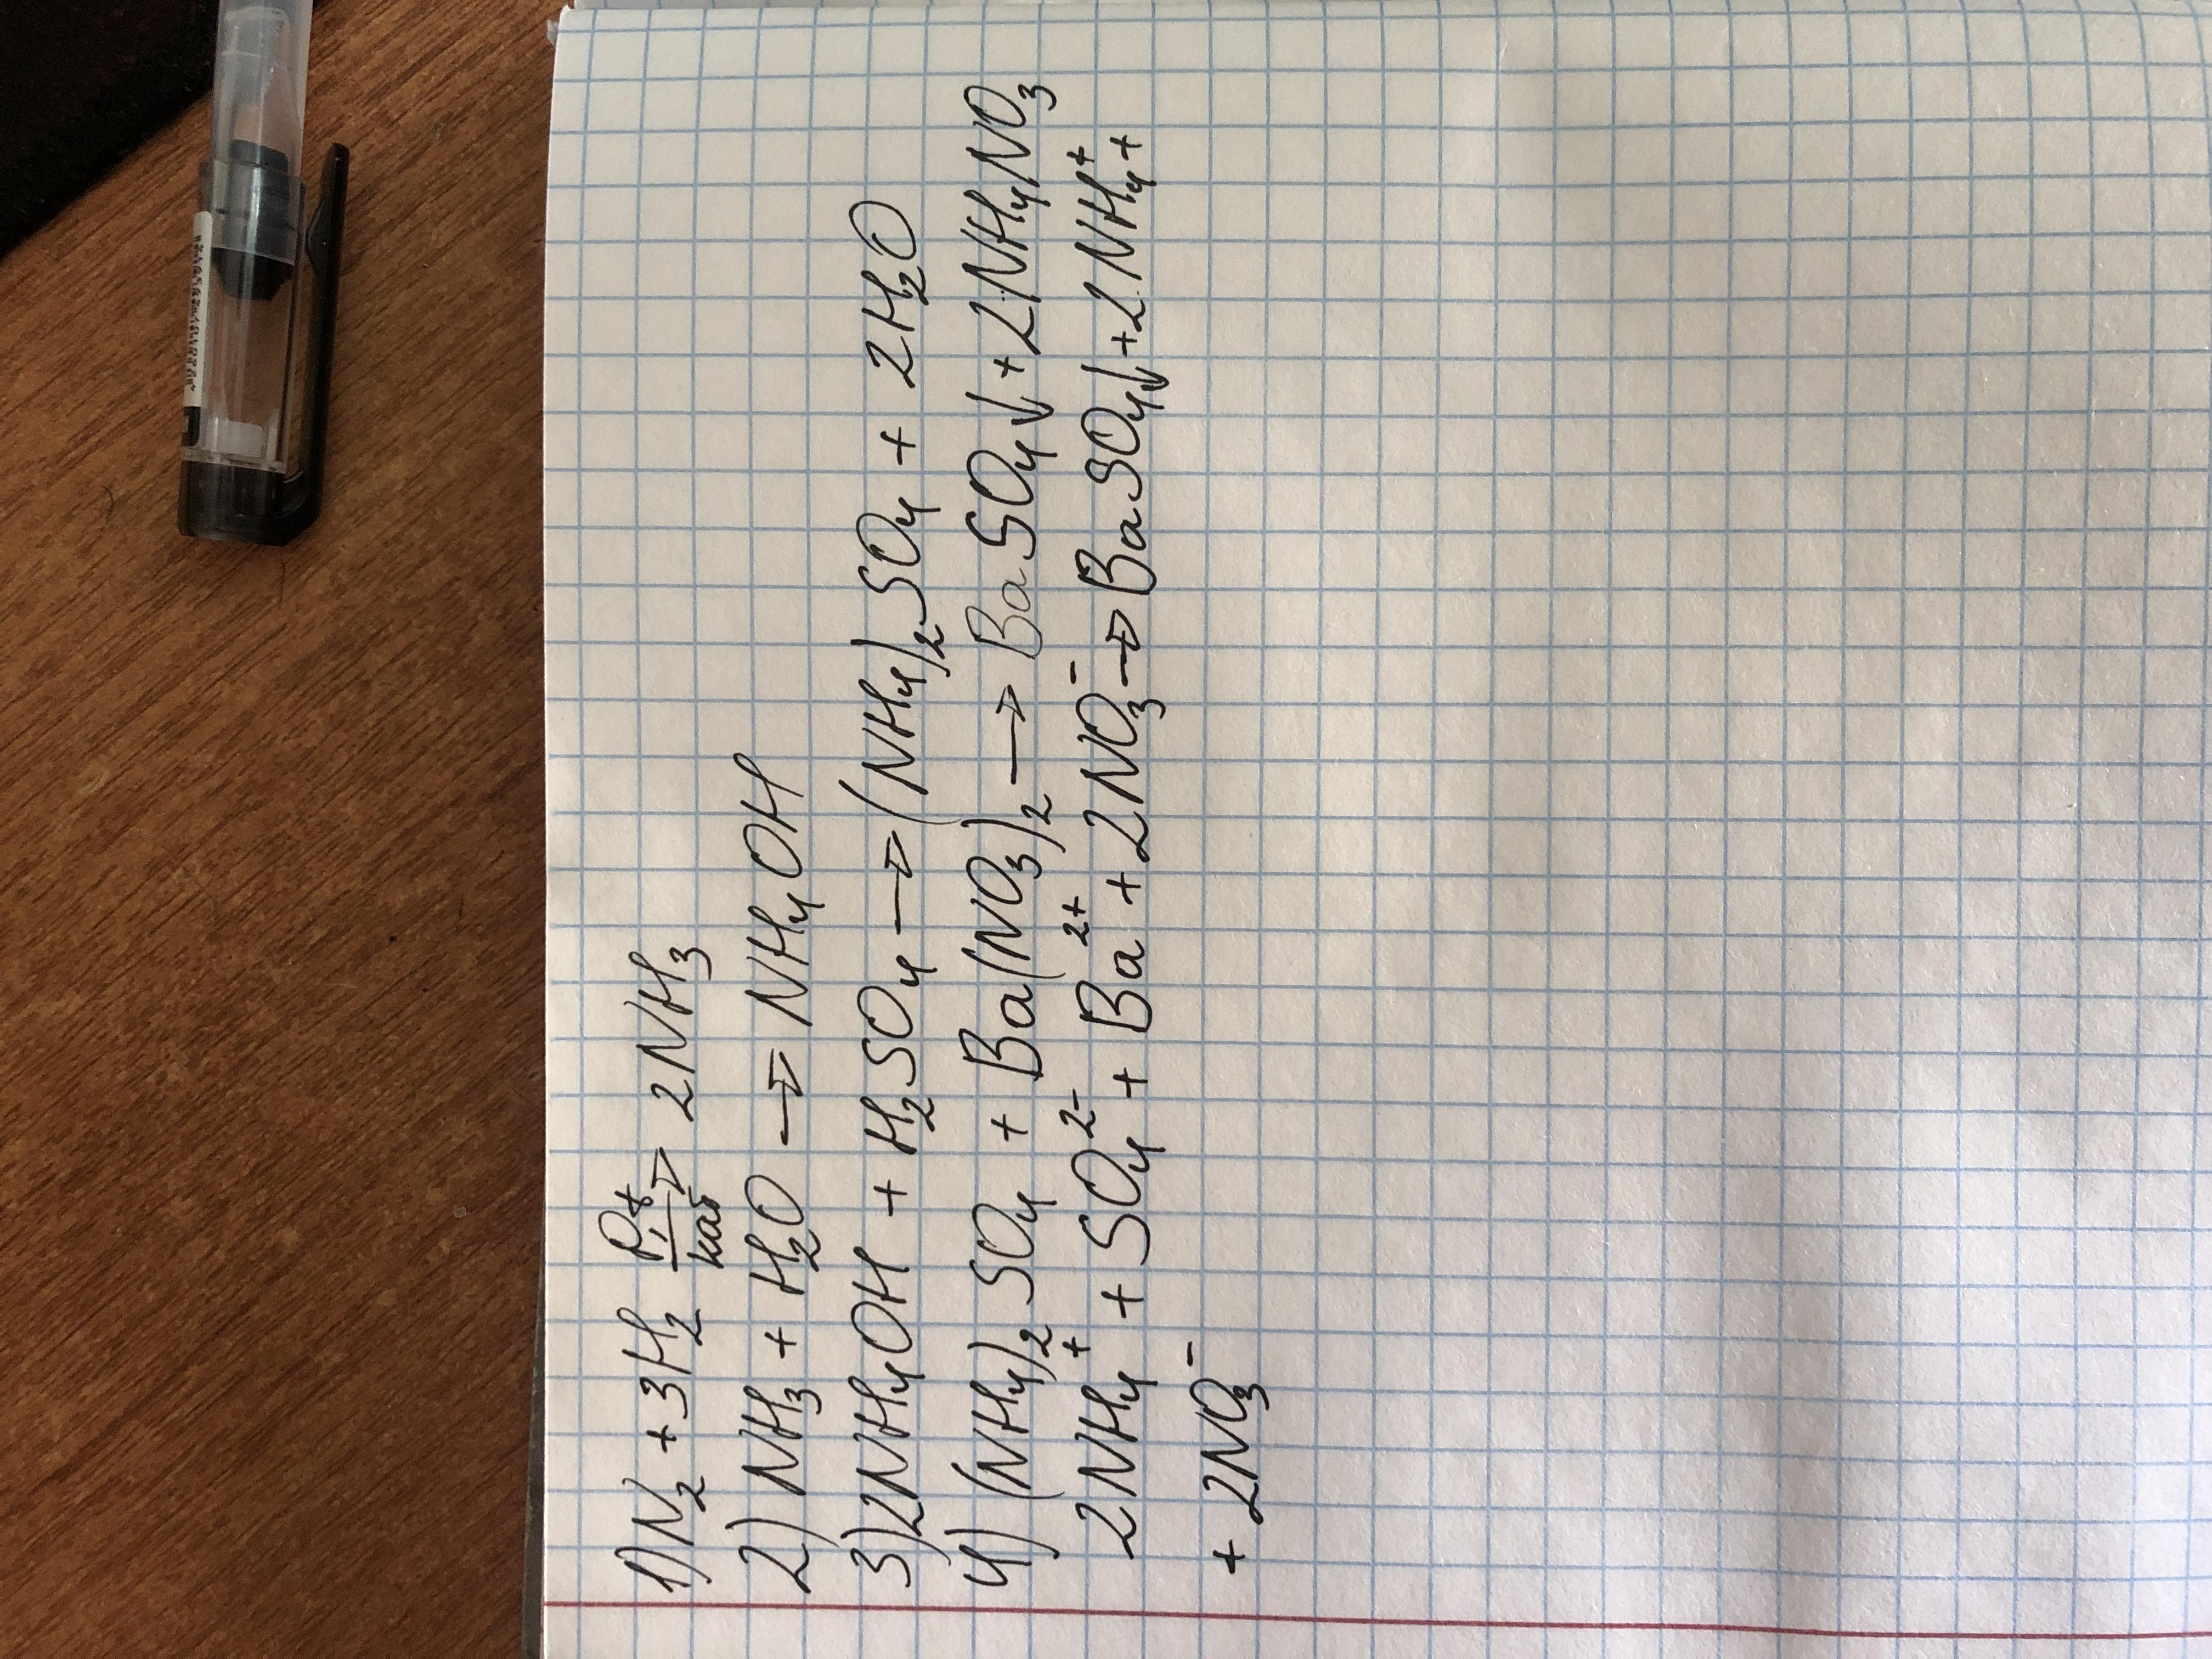 1) N₂ + 3H₂ P, t кат → 2NH₃
2) NH₃ + H₂O → NH₄OH
3) 2NH₄OH + H₂SO₄ → (NH₄)₂SO₄ + 2H₂O
4) (NH₄)₂SO₄ + Ba(NO₃)₂ → BaSO₄↓ + 2NH₄NO₃
2NH₄⁺ + SO₄²⁻ + Ba²⁺ + 2NO₃⁻ → BaSO₄↓ + 2NH₄⁺ +
+ 2NO₃⁻